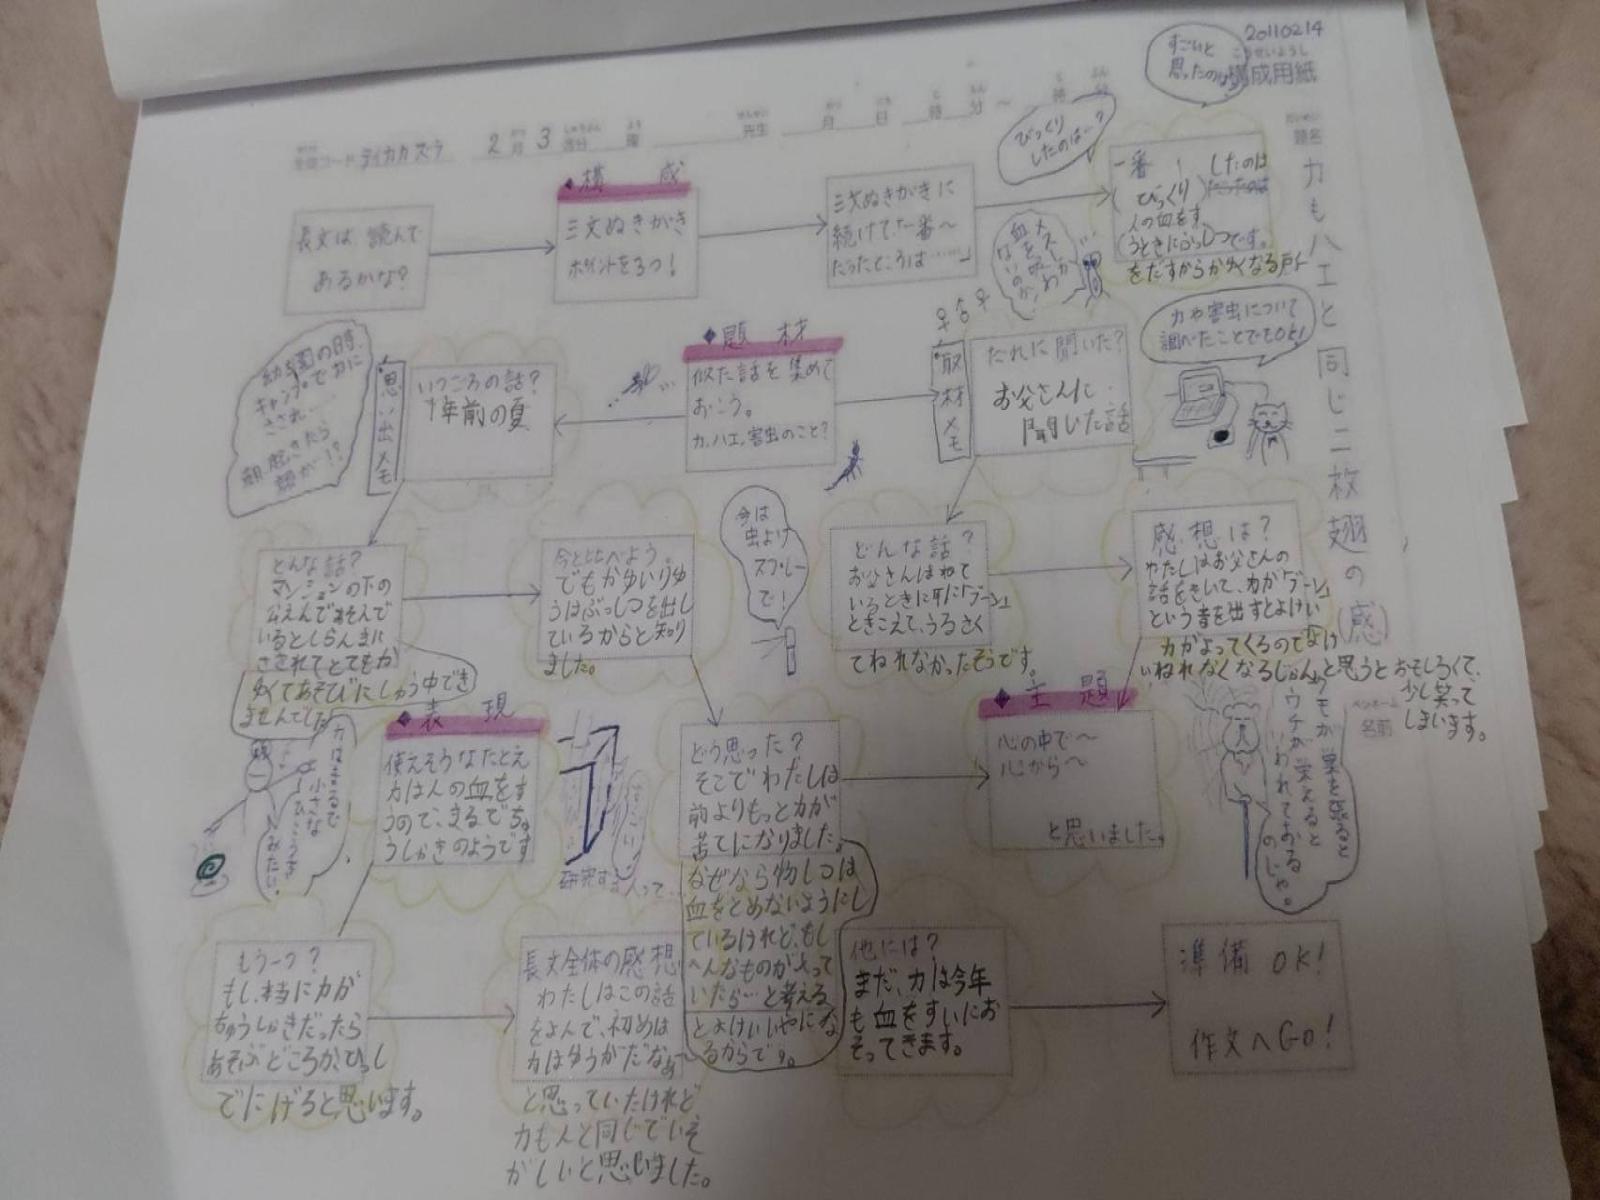 20110214
こうせいようし
構成用紙
すごいと
思ったのは
題名
カもハエと同じ二枚翅の(感)
テイカカズラ 2月3週分 曜 先生 月 日 時 分 ～ 時 分
長文は、読んで
あるかな?
◆構 成
三文ぬきがき
ポイントを3つ!
三文ぬきがきに
続けて「一番～
だったところは……」
びっくり
したのは…?
一番 したのは
びっくり
人の血をす
うときにぶっしつです。
をだすからかゆくなる
メスしか
血を吸わ
ないのか!
カや害虫について
調べたことでもOK!
◆題 材
似た話を集めて
おこう。
カ、ハエ、害虫のこと?
取材メモ
だれに聞いた?
お父さんに
聞いた話
思い出メモ
いつごろの話?
1年前の夏
幼稚園の時、
キャンプでカに
さされ…
朝、起きたら
顔が!?
どんな話?
マンションの下の
公えんであそんで
いるとしらんまに
さされてとてもか
ゆくてあそびにしゅう中でき
ませんでした
今と比べよう
でもかゆいりゆ
うはぶっしつを出し
ているからと知り
ました。
今は
虫よけ
スプレー
で!
どんな話?
お父さんはねて
いるときに耳に「ブーン」
ときこえて、うるさく
てねれなかったそうです。
感想は?
わたしはお父さんの
話をきいて、カが「ブーン」
という音を出すとよけい
カがよってくるので
ねれなくなるじゃんと思うとおもしろくて、
少し笑って
しまいます。
ペンネーム
名前
◆表 現
使えそうなたとえ
カは人の血をす
うので、まるでち。
うしゃきのようです
カはまるで
小さな
ひこうき
みたい。
研究する人って…
どう思った?
そこでわたしは
前よりもっとカが
苦てになりました。
なぜなら物しつは
血をとめないようにし
ているけれど、もし
へんなものが入って
いたら…と考える
とよけいいやにな
るからです。
◆主 題
心の中で～
心から～
と思いました。
クモが巣を張ると
ウチが栄えると
いわれておる
のじゃ。
もう一つ?
もし、本当にカが
ちゅうしゃきだったら
あそぶどころか、ひっし
でにげると思います。
長文全体の感想
わたしはこの話
をよんで、初めは
カはゆうがだなぁ
と思っていたけれど
カも人と同じでいそ
がしいと思いました。
他には?
まだ、カは今年
も血をすいにお
そってきます。
準備 OK!
作文へGO!